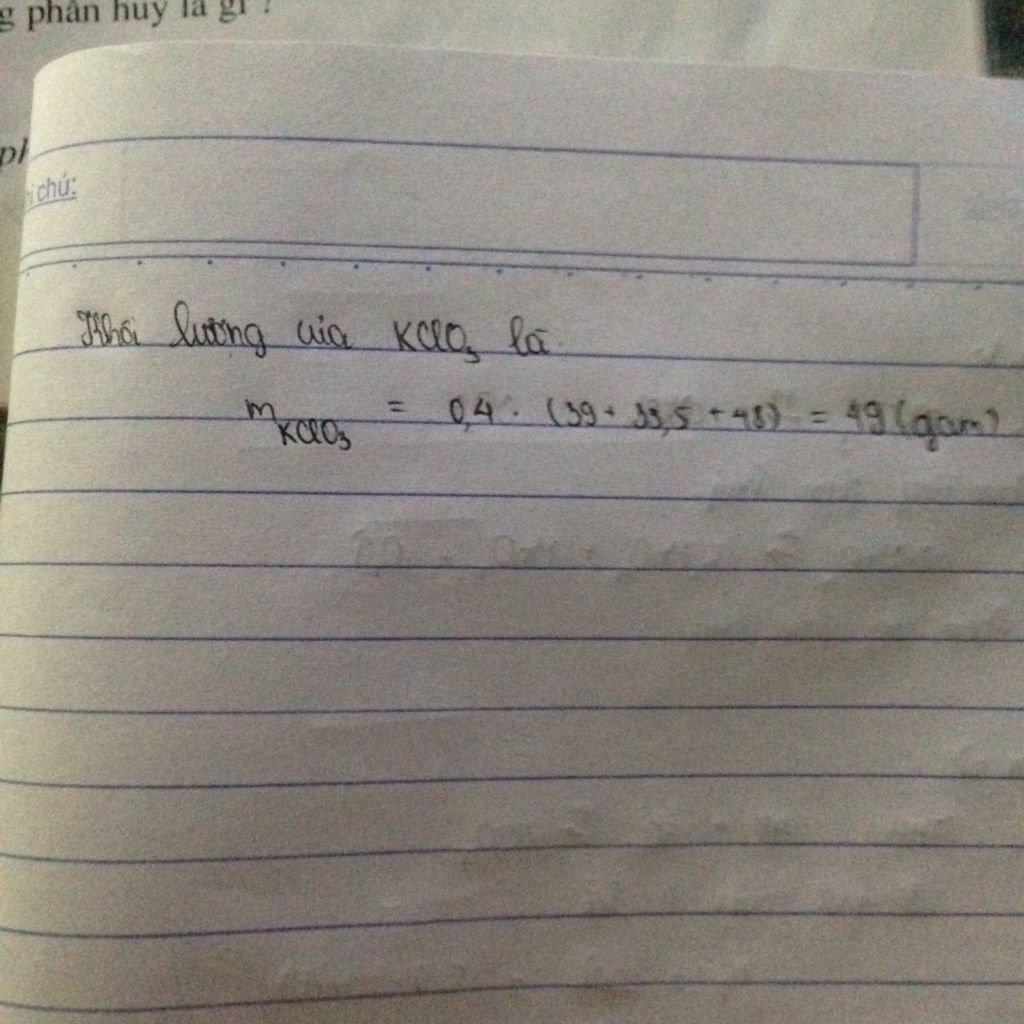 g phân huỷ là gì ?
ph
i chú:
Khối lượng của KClO3 là
mKClO3 = 0,4 . (39 + 33,5 + 48) = 49 (gam)